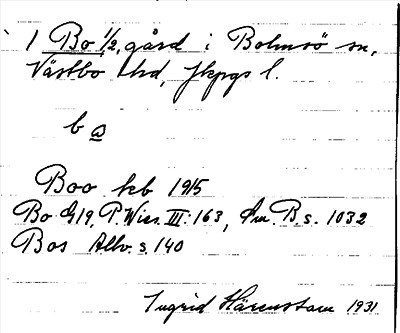 1 Bo 1/2, gård i Bolmsö sn,
Västbo hd, Jkpgs l.
b o
Boo kb 1915
Bo G19, P. Wies. III: 163, Sm. B. s. 1032
Bos Allv. s. 140
Ingrid Härenstam 1931